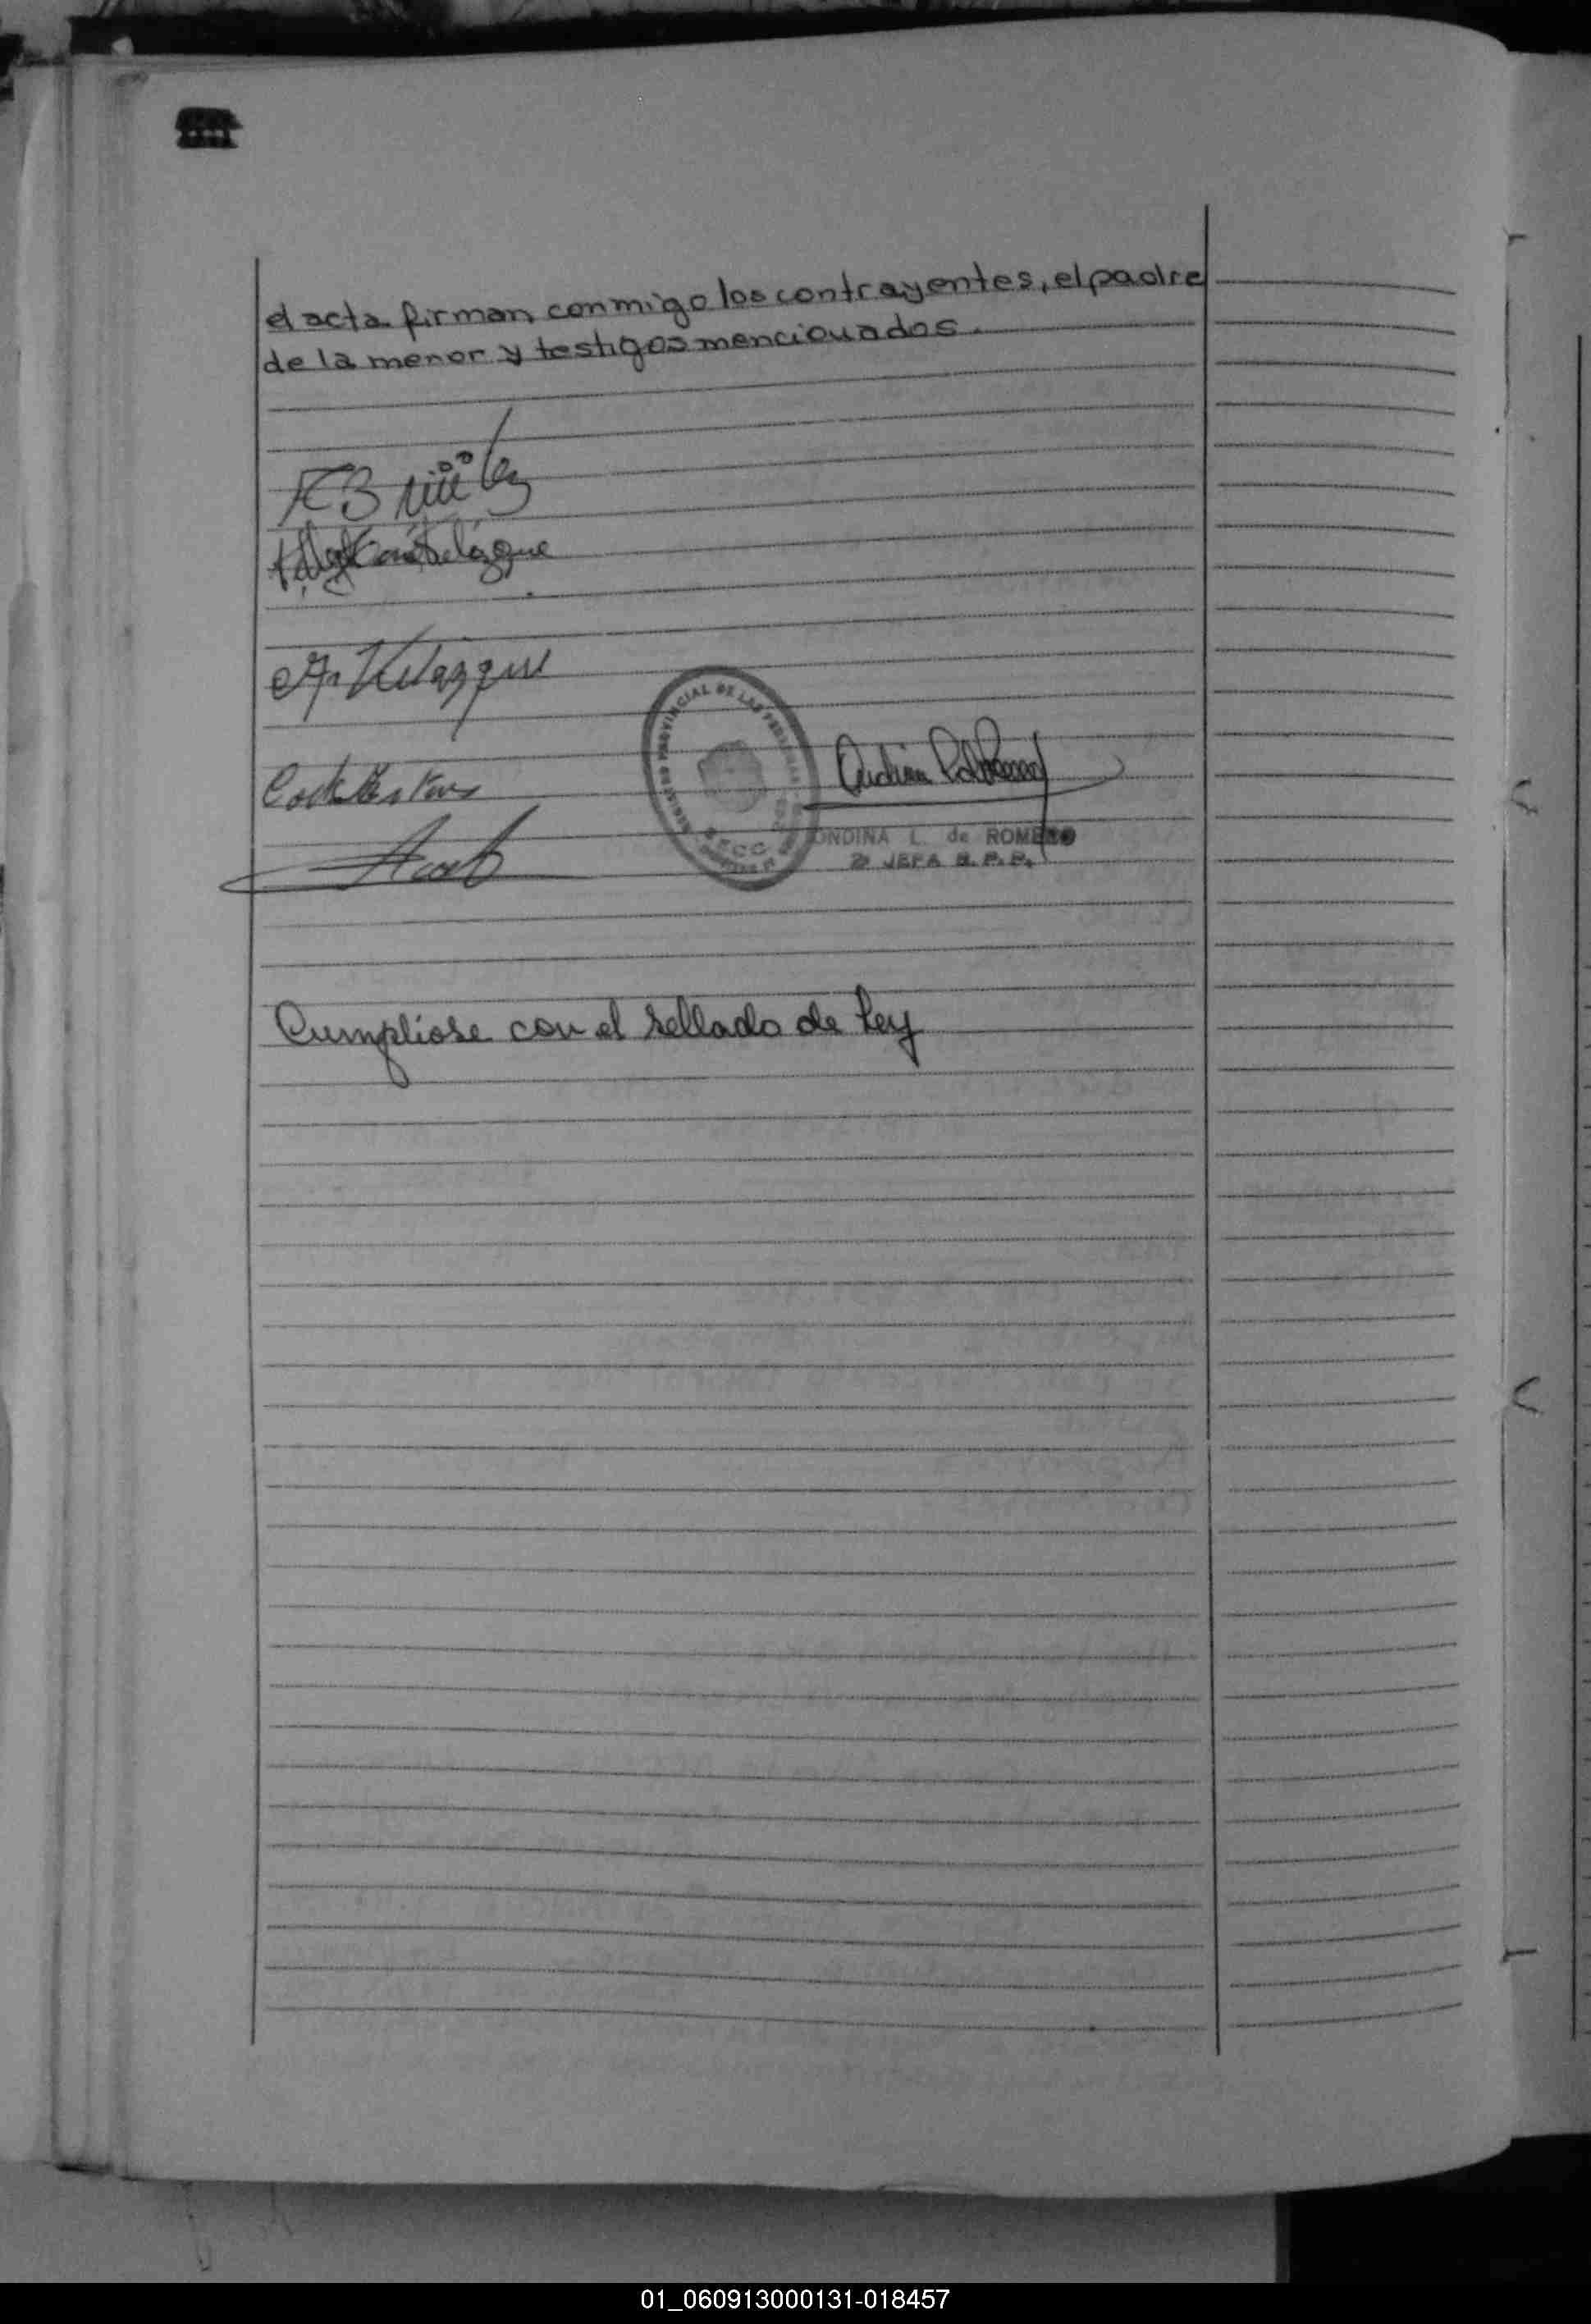 el acta firman conmigo los contrayentes, el padre
de la menor y testigos mencionados.
Velázque
Velazque
REGISTRO PROVINCIAL DE LAS PERSONAS
SECC.
ONDINA L. de ROMERO
JEFA R. P. P.
Cumplióse con el sellado de Ley
01_060913000131-018457